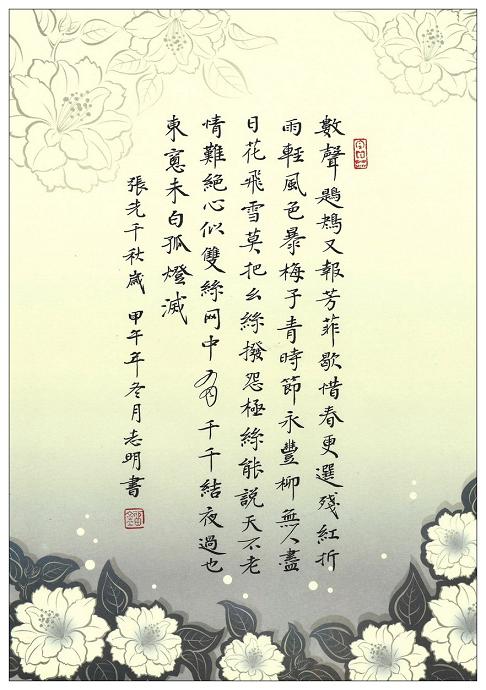 數聲鶗鴂又報芳菲歇惜春更選殘紅折
雨輕風色暴梅子青時節永豐柳無人盡
日花飛雪莫把幺絲撥怨極絲能說天不老
情難絕心似雙絲网中有千千結夜過也
東窻未白孤燈滅
張先千秋歲 甲午年冬月志明書